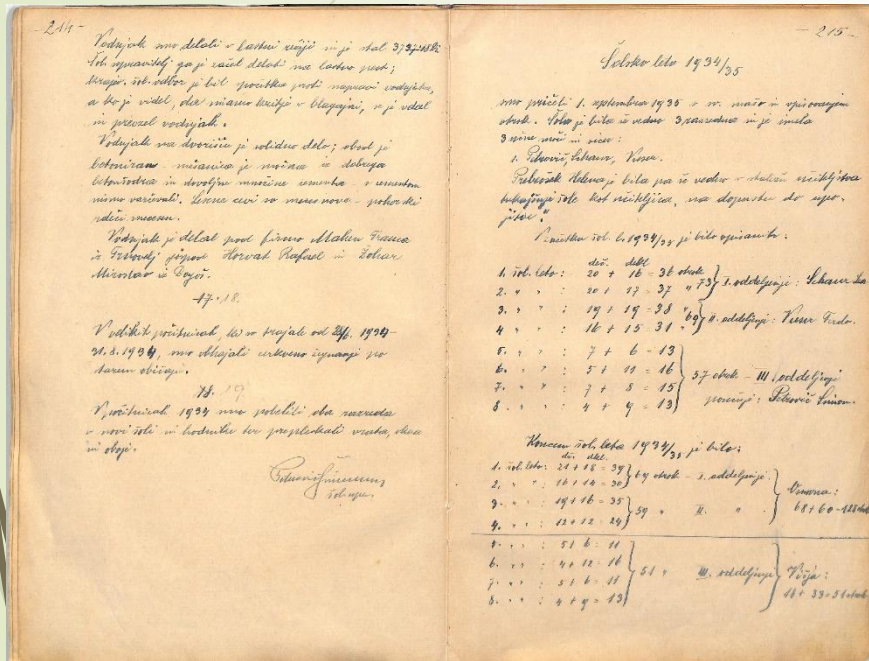 - 214 -
Vodnjak smo delali v lastni režiji in je stal 3737·18 Din
Šol. upravitelj ga je začel delati na lastno pest;
krajn. šol. odbor je bil početka proti napravi vodnjaka,
a ko je videl, da nismo kritja v blagajni, se je vdal
in prevzel vodnjak.
Vodnjak na dvorišču je solidno delo; obod je
betoniran - mešanica je močna iz dobrega
in dovoljne množine cementa - s cementom
nismo varčevali. cevi so nove - pohorski
Vodnjak je delal pod firmo Franca
iz gospod Horvat Rafael in
Miroslav iz
17. 18.
V velikih počitnicah, ki so trajale od 28/6. 1934-
31.8.1934, smo obhajali cerkveno žegnanje po
starem običaju.
18. 19
V počitnicah 1934 smo pobelili oba razreda
v novi šoli in hodnike ter prepleskali vrata, okna
in oboji.
šol. upr.
- 215 -
Šolsko leto 1934/35
smo pričeli 1. septembra 1935 s sv. mašo in vpisovanjem
otrok. Šola je bila še vedno 3 razredna in je imela
3 učne moči in sicer:
1. Petrovič, Schaur, Vieser.
Helena je bila pa še vedno v učiteljstva
tukajšnje šole kot učiteljica, na dopustu do upo-
kojitve."
V začetku šol. l. 1934/35 je bilo vpisanih:
deč. dekl.
1. šol. leto: 20 + 16 = 36 otrok
2. " " : 20 + 17 = 37 " 73 } I. oddelenje: Schaur
3. " " : 19 + 19 = 38 "
4 " " : 16 + 15 = 31 " 69 } II. oddelenje: Vieser
5. " " : 7 + 6 = 13
6. " " : 5 + 11 = 16
7. " " : 7 + 8 = 15
8. " " : 4 + 9 = 13 } 57 otrok - III. oddelenje
poučuje: Petrovič Simon.
Koncem šol. leta 1934/35 je bilo:
deč. dekl.
1. šol. leto: 21 + 18 = 39
2. " " : 16 + 14 = 30 } 69 otrok - I. oddelenje
3. " " : 19 + 16 = 35
4. " " : 12 + 12 = 24 } 59 " II. "
Osnovna:
68 + 60 = 128 otrok
5. " " : 5 + 6 = 11
6. " " : 4 + 12 = 16
7. " " : 5 + 6 = 11
8. " " : 4 + 9 = 13 } 51 " III. oddelenje
Višja:
18 + 33 = 51 otrok